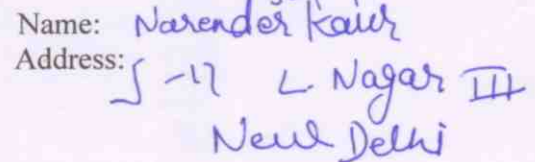 Name: Narender Kaur
Address:
J-17 L. Nagar III
New Delhi